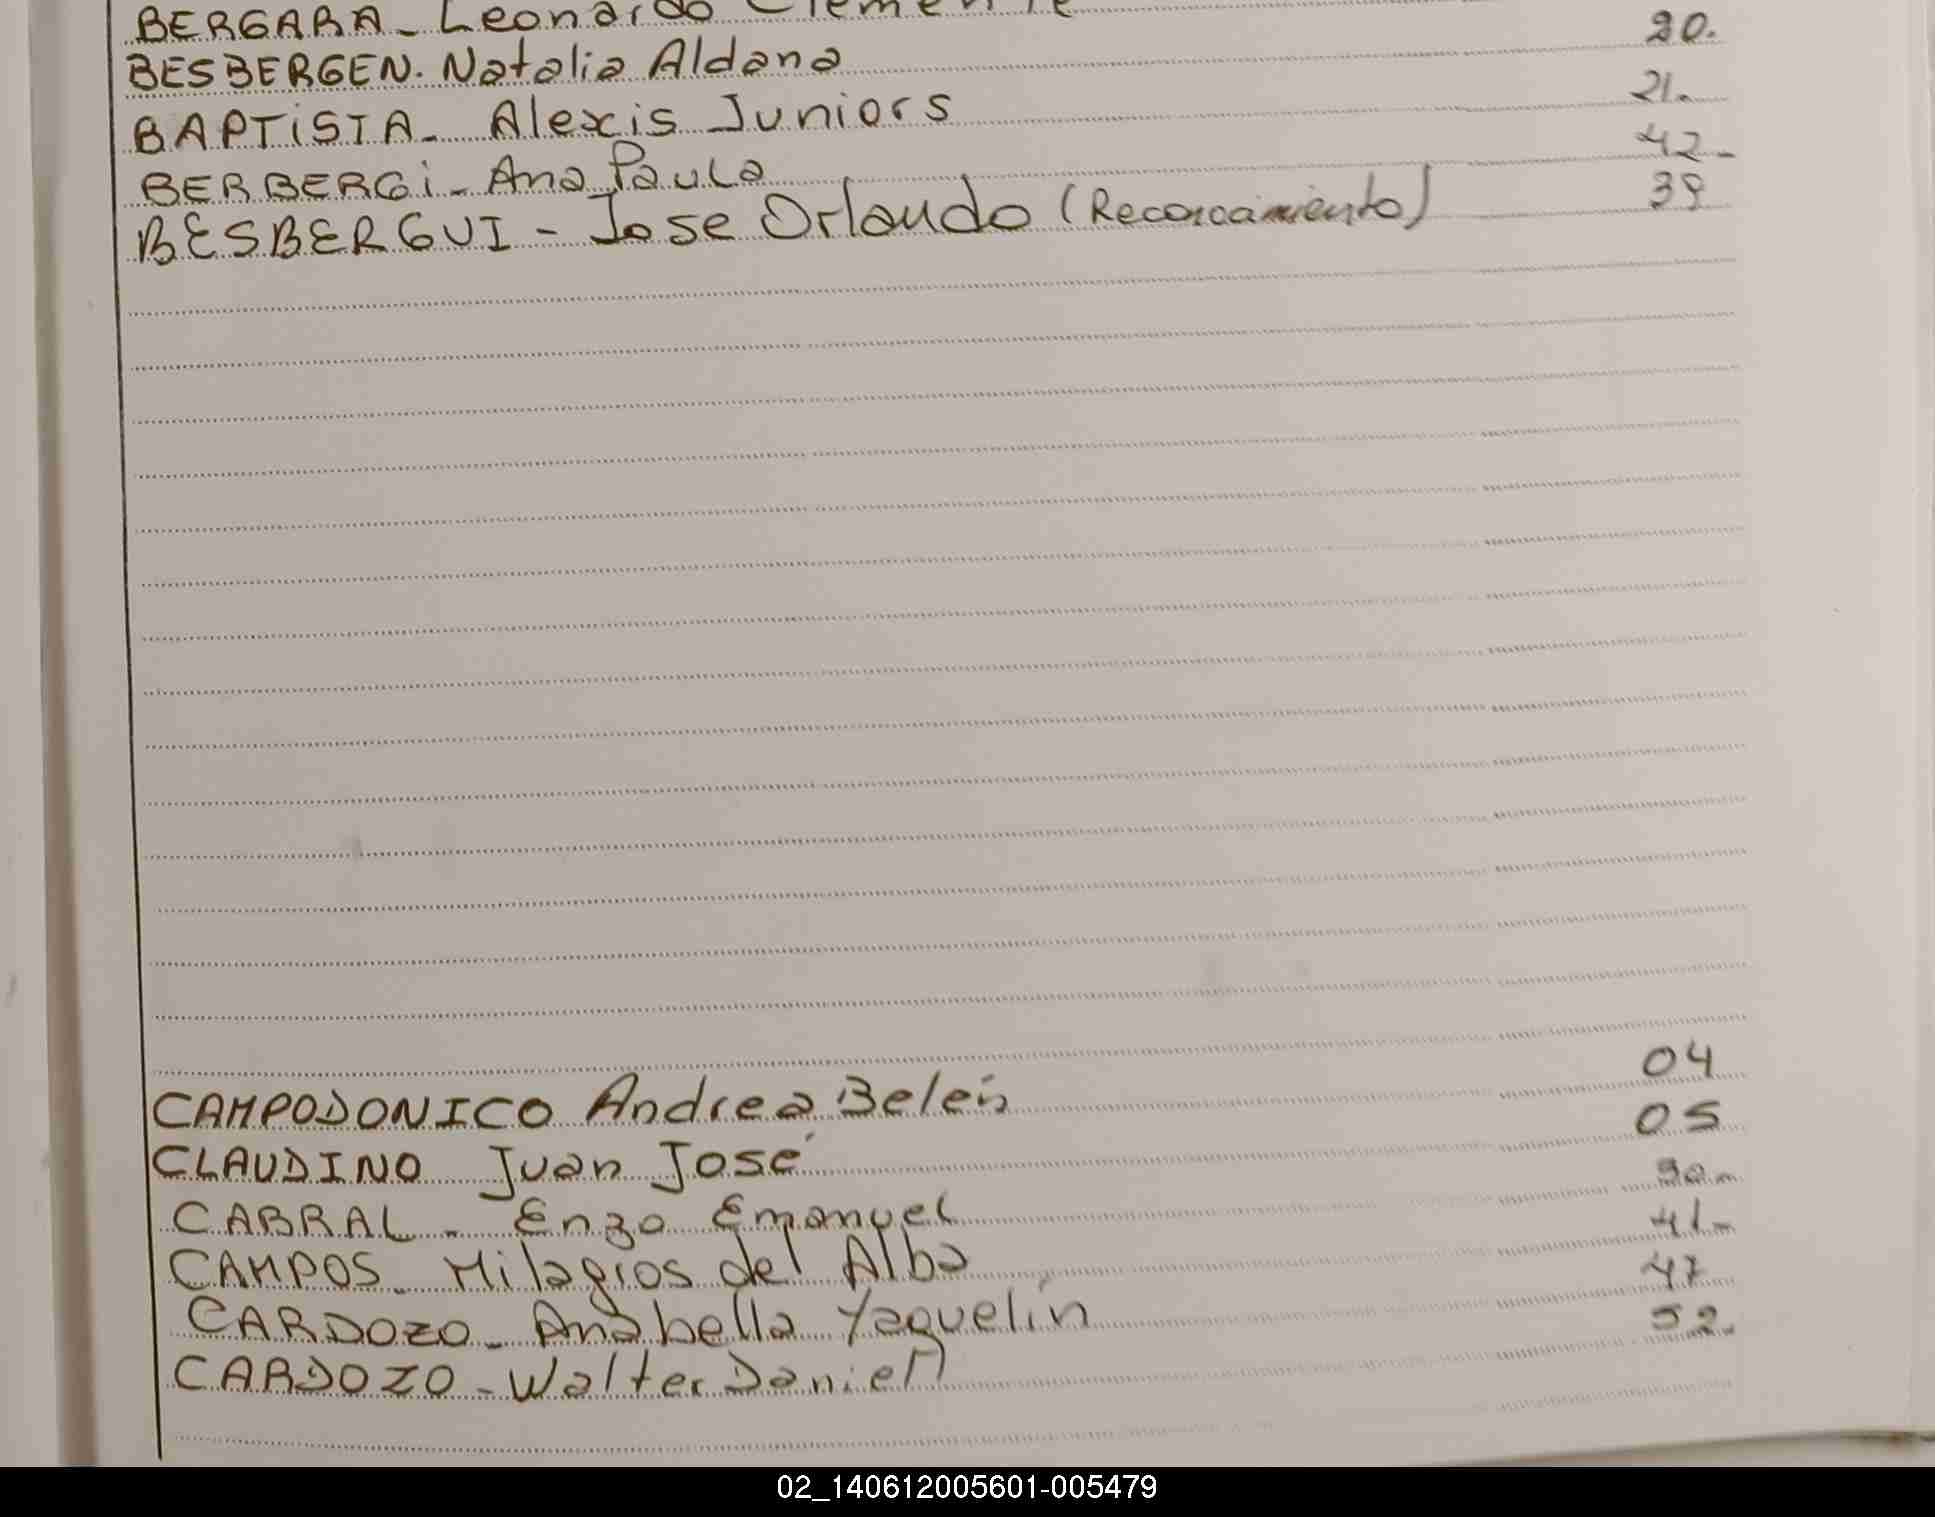 BERGARA - Leonardo Clemente
BESBERGEN. Natalia Aldana 20.
BAPTiSTA - Alexis Juniors 21.
BERBERGi - Ana Paula 42-
BESBERGUI - Jose Orlando (Reconocamiento) 39
CAMPODONICO Andrea Belén 04
CLAUDINO Juan José 05
CABRAL - Enzo Emanuel 30-
CAMPOS - Milagros del Alba 41-
CARDOZO - Anabella Yaquelin 47
CARDOZO - Walter Daniel 52.
02_140612005601-005479